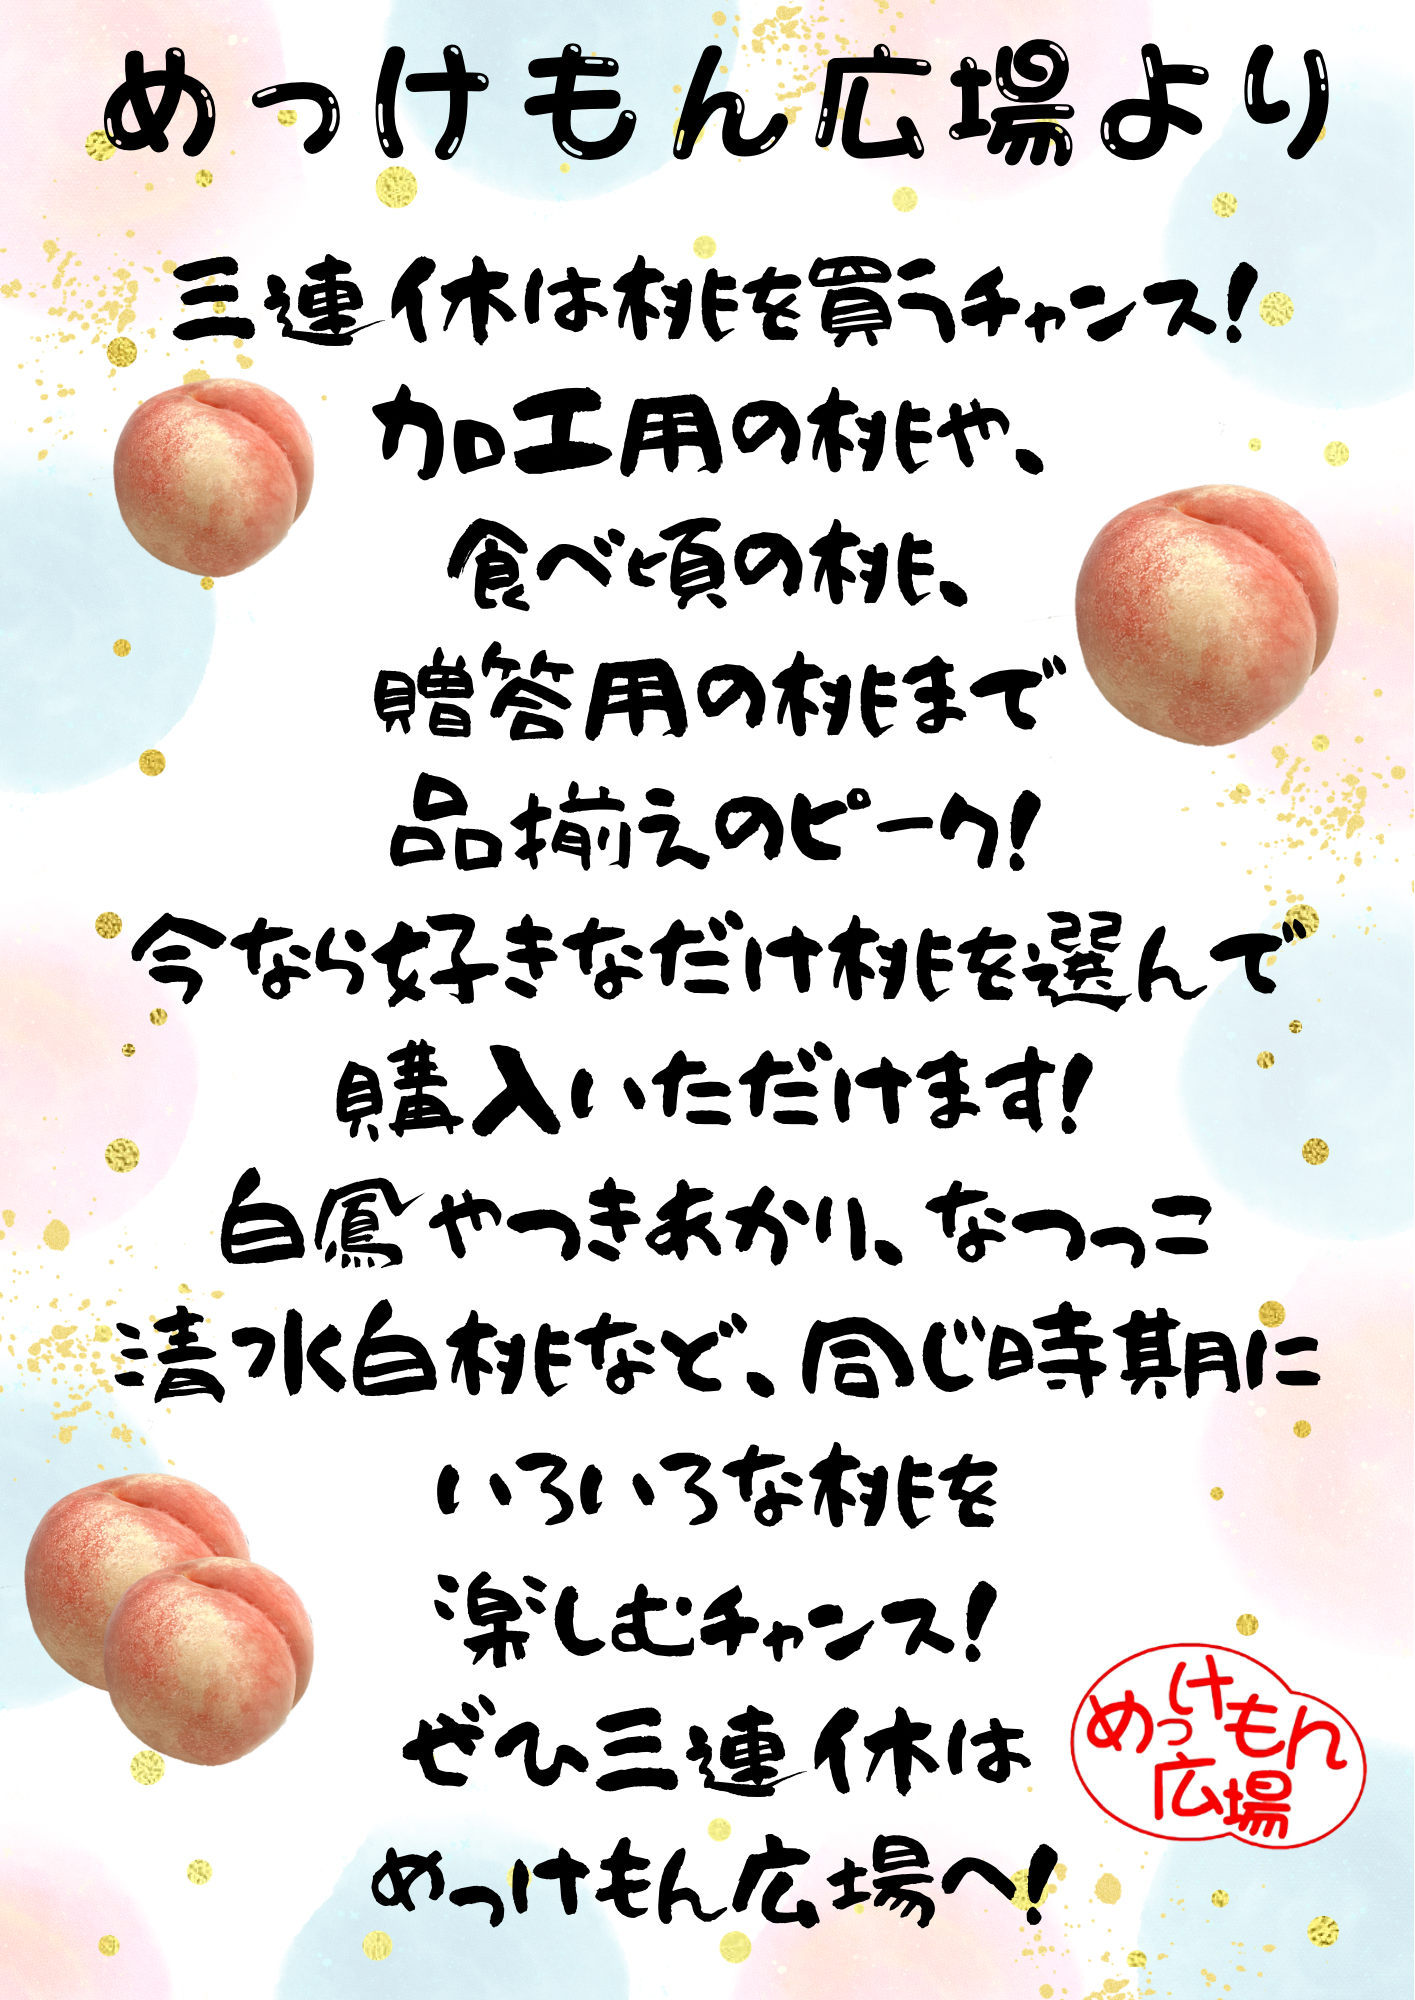 めっけもん広場より
三連休は桃を買うチャンス!
加工用の桃や、
食べ頃の桃、
贈答用の桃まで
品揃えのピーク!
今なら好きなだけ桃を選んで
購入いただけます!
白鳳やつきあかり、なつっこ
清水白桃など、同じ時期に
いろいろな桃を
楽しむチャンス!
ぜひ三連休は
めっけもん広場へ!
めっけもん
広場